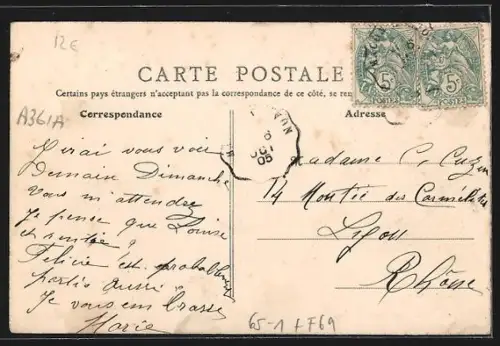 12€
CARTE POSTALE
Certains pays étrangers n'acceptant pas la correspondance de ce côté, se
A361A
Correspondance
Adresse
5c
5c
POSTES
POSTES
6
05
J'irai vous voir
Demain Dimanche
vous m'attendre
Je pense que Louise
est rentrée ?
Felicie est probablement
partie aussi ?
Je vous embrasse
Marie
Madame C.
14 Montée des Carmélites
Lyon
Rhône
65-1 + F69